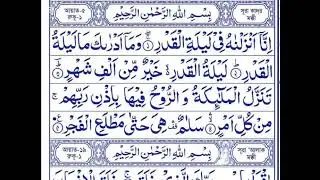 আয়াত-৫
রুকু-১
بِسْمِ اللّٰهِ الرَّحْمٰنِ الرَّحِيْمِ
সূরা ক্বদর
মক্কী
اِنَّاۤ اَنْزَلْنٰهُ فِيْ لَيْلَةِ الْقَدْرِ ۝١ وَمَاۤ اَدْرٰىكَ مَا لَيْلَةُ
الْقَدْرِ ۝٢ لَيْلَةُ الْقَدْرِ خَيْرٌ مِّنْ اَلْفِ شَهْرٍ ۝٣
تَنَزَّلُ الْمَلٰٓئِكَةُ وَالرُّوْحُ فِيْهَا بِاِذْنِ رَبِّهِمْ
مِنْ كُلِّ اَمْرٍ ۝٤ سَلٰمٌ هِيَ حَتّٰى مَطْلَعِ الْفَجْرِ ۝٥
আয়াত-১৯
রুকু-১
بِسْمِ اللّٰهِ الرَّحْمٰنِ الرَّحِيْمِ
মক্কী